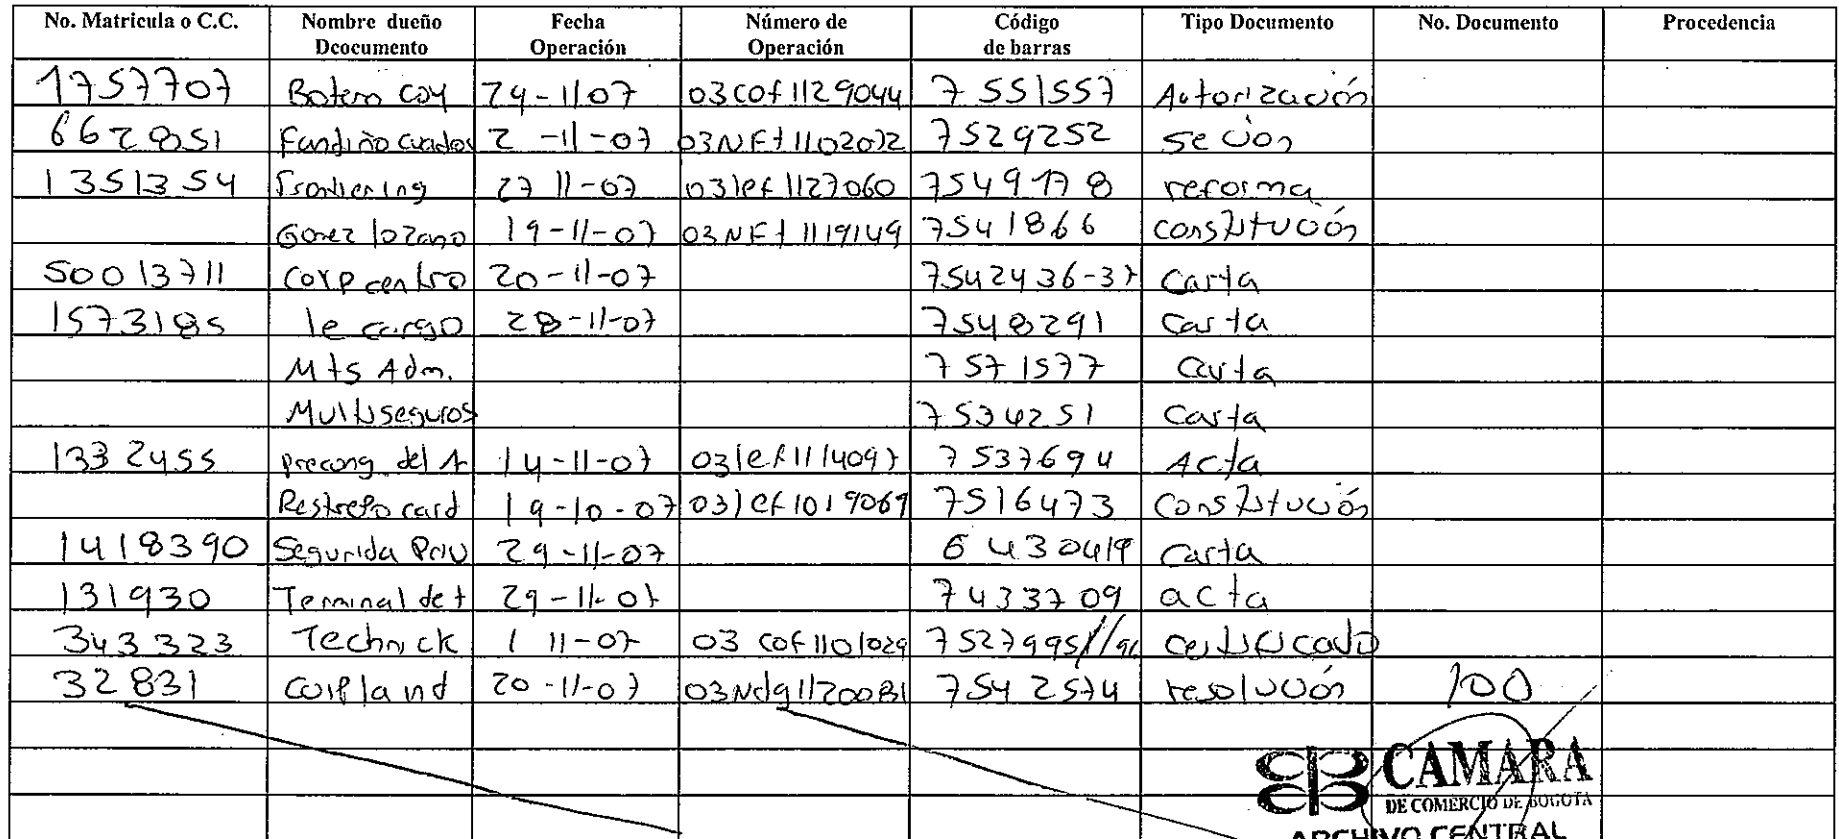 No. Matricula o C.C. Nombre dueño Dcocumento Fecha Operación Número de Operación Código de barras Tipo Documento No. Documento Procedencia
1757707 Botero Coy 24-1107 03cof1129044 7551557 Autorización
6628051 Fandiño cuados 2-11-07 03NEt1102072 7529252 seción
1351354 Frontiering 27 11-07 03lef1127060 7549178 reforma
Gomez lozano 19-11-07 03NEt1119149 7541866 constitución
50013711 Corp centro 20-11-07 7542436-37 Carta
1573185 le cargo 28-11-07 7548291 Carta
Mts Adm. 7571577 Carta
Multiseguros 7534251 Carta
1332455 precong. del A 14-11-07 03lef1114097 7537694 Acta
Restrepo card 19-10-07 03lef1019067 7516473 Constitución
1418390 Segurida Priv 29-11-07 6430419 Carta
131930 Terminal de t 29-11-07 7433709 acta
343323 Technick 1 11-07 03 cof1101029 7527995//96 certificado
32831 Coipland 20-11-07 03Ndg1120081 7542574 resolución 100
CAMARA
DE COMERCIO DE BOGOTA
ARCHIVO CENTRAL